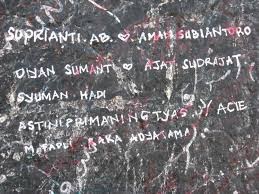 SUPRIANTI. AB. ♡ AMAN SUBIANTORO
DIYAN SUMANTI ♡ AJAT SUDRAJAT
SYUMAN HADI
ASTINI PRIMANINGTYAS // ACIE
RAKA ADYATAMA)